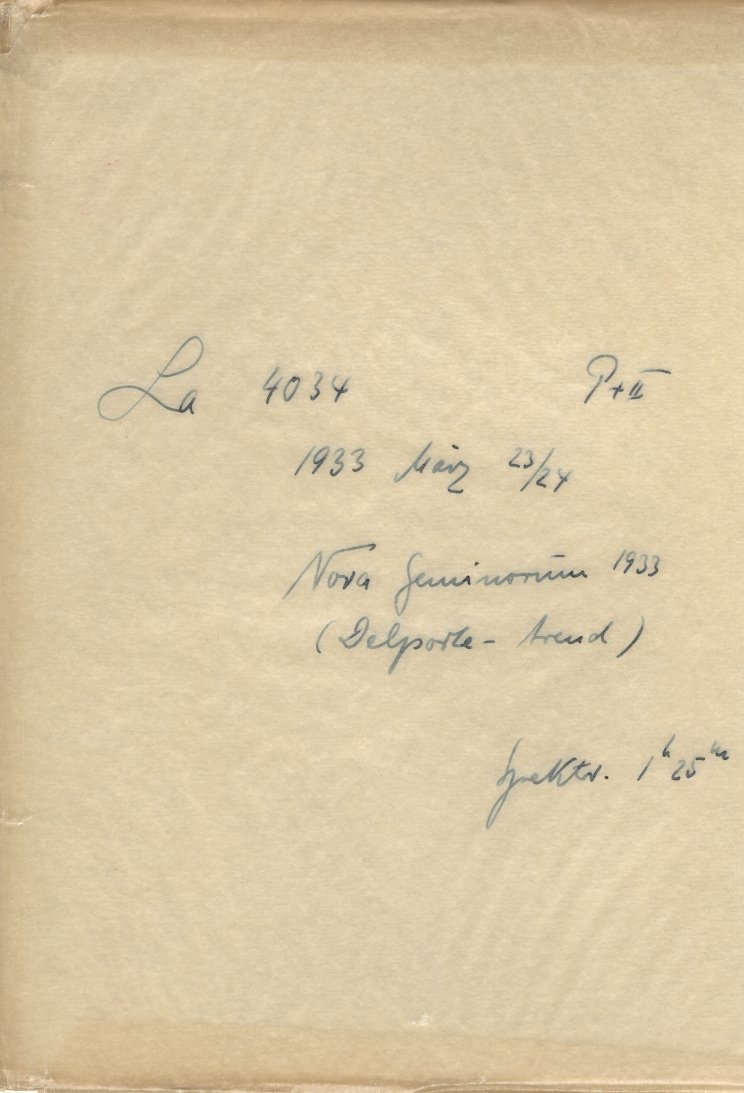 La 4034 P+II
1933 März 23/24
Nova Geminorum 1933
(Delporte- Arend)
Spektr. 1ʰ 25ᵐ